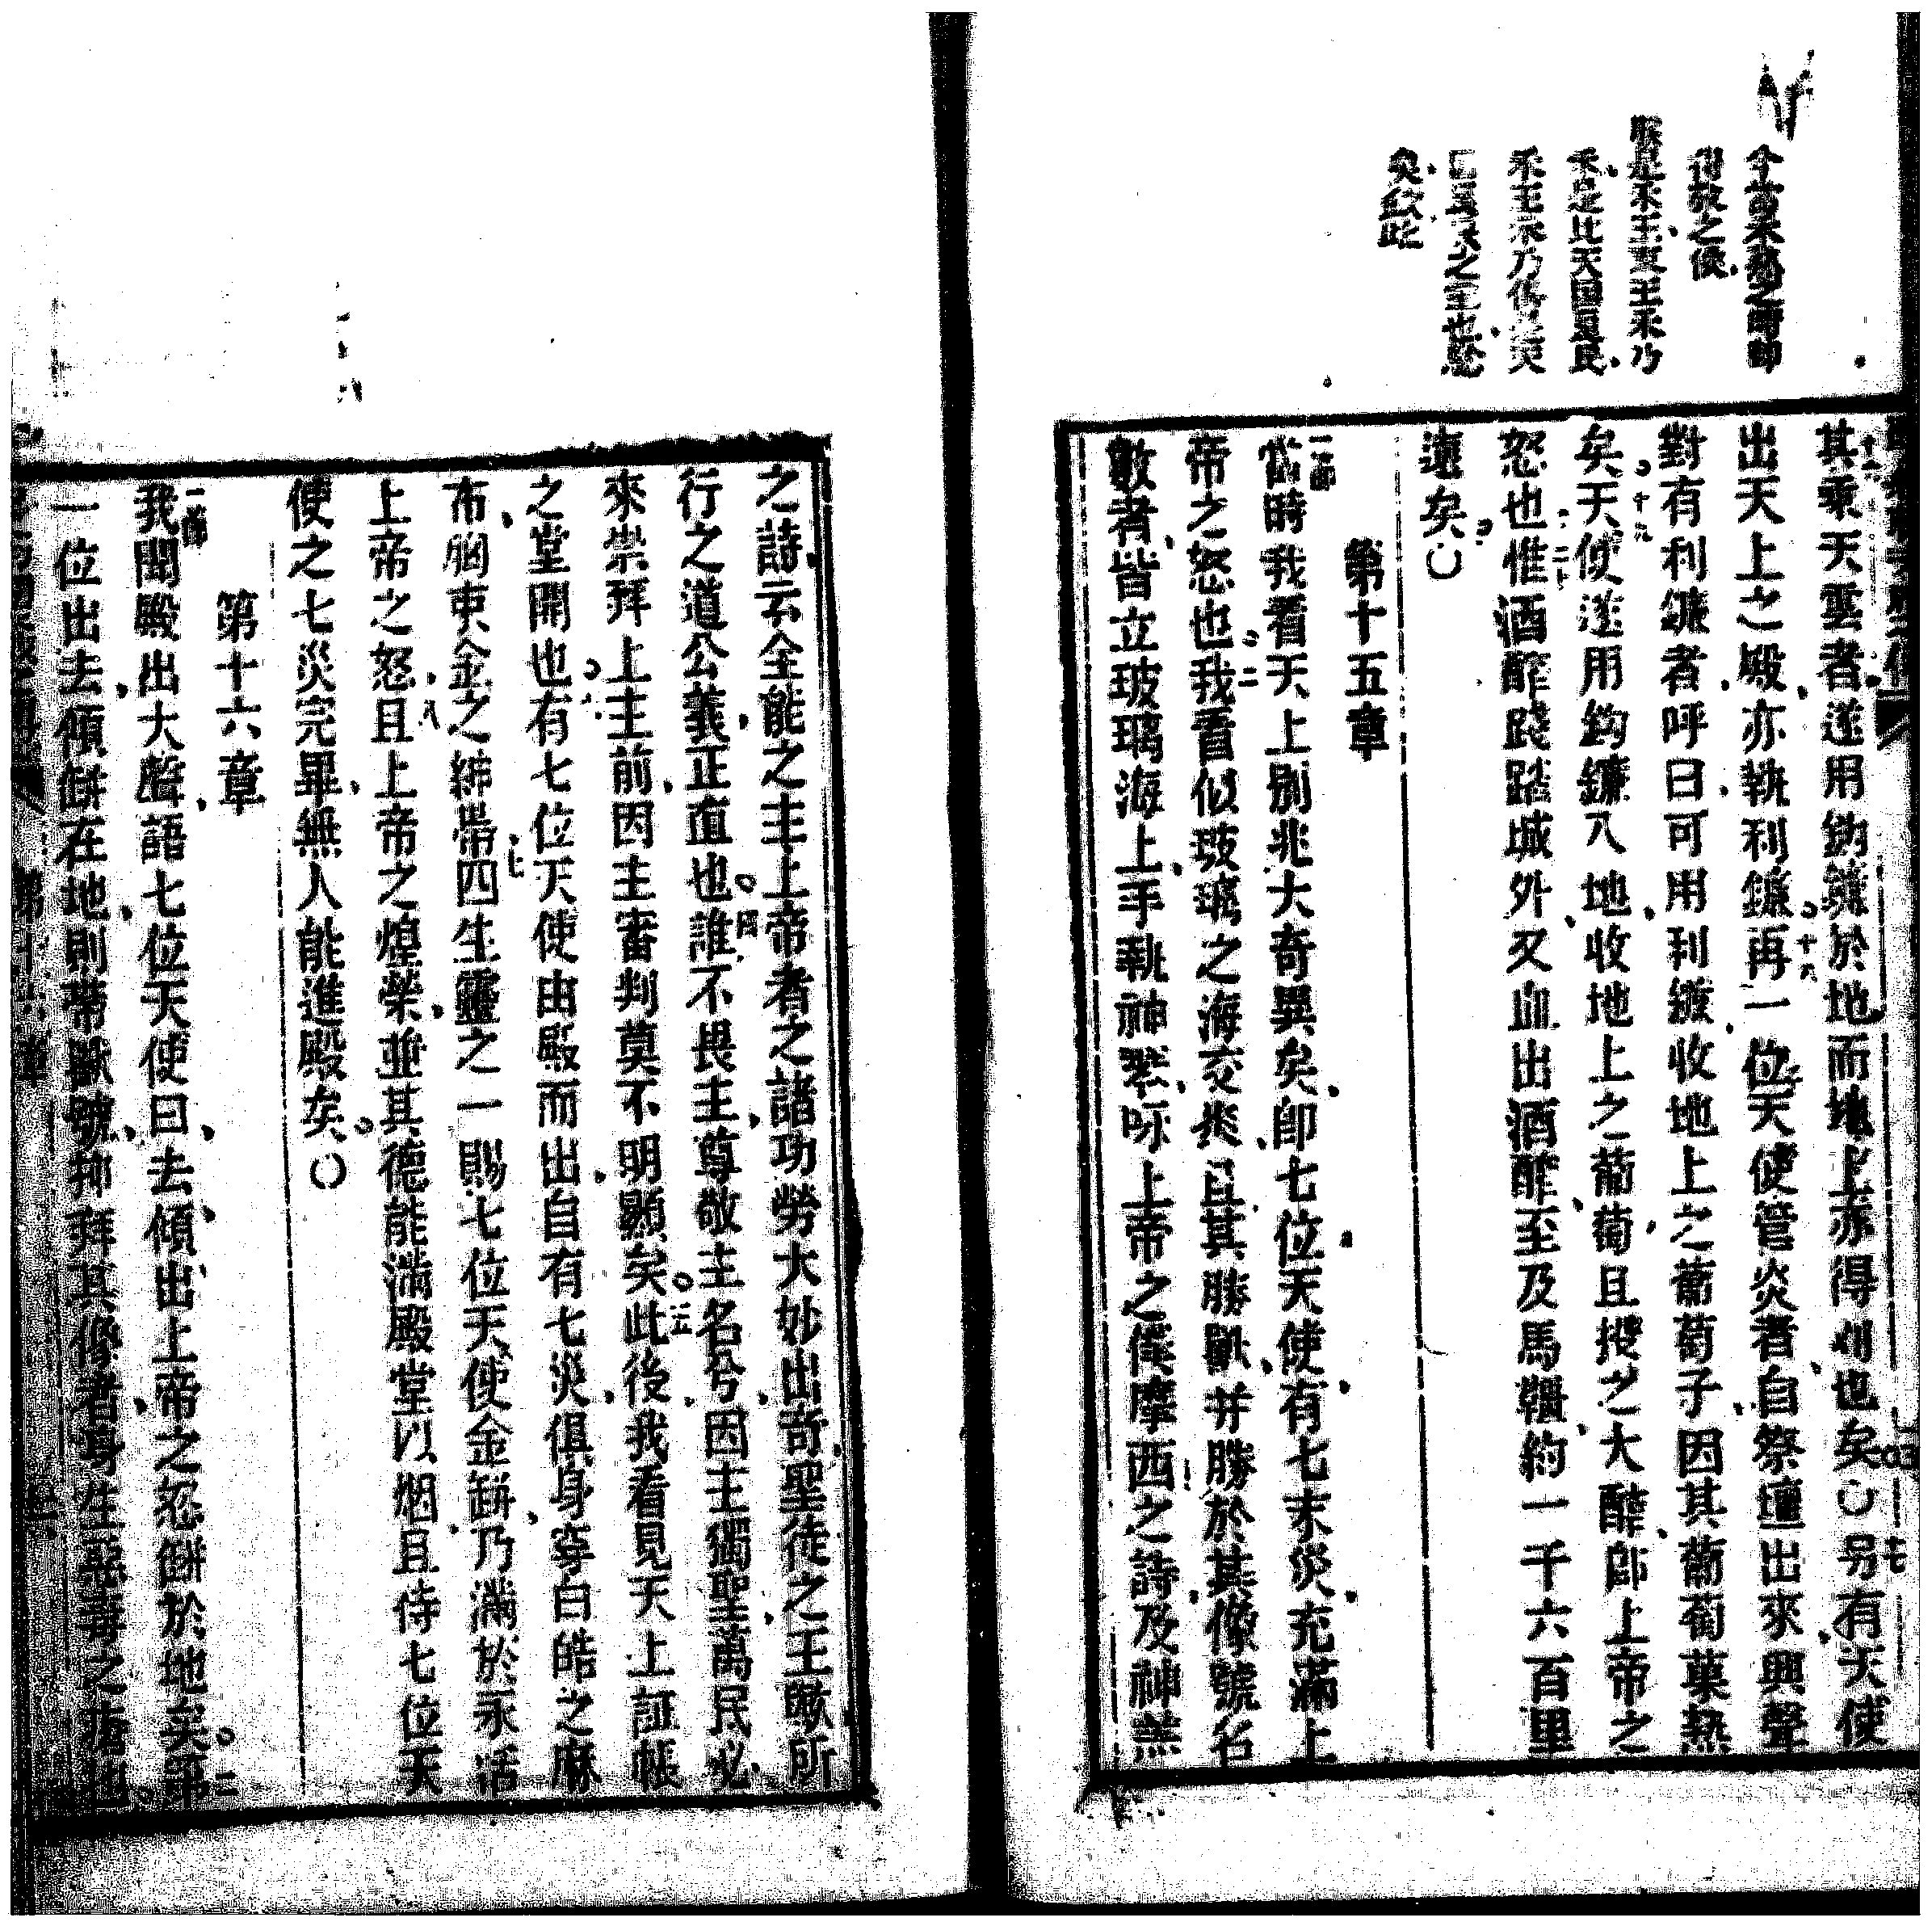 今當禾熟之時即
刈故之使
禾王乃係是天
之王也
矣欽此
其乘天雲者遂用鈎鐮於地而地上亦得刈也矣○另有天使
出天上之殿亦執利鐮再一位天使管炎者自祭壇出來與聲
對有利鐮者呼曰可用利鐮收地上之葡萄子因其葡萄菓熱
矣天使遂用鈎鐮入地收地上之葡萄且投之大醡即上帝之
怒也惟酒醡踐踏城外又血出酒醡至及馬韁約一千六百里
遠矣○
第十五章
一節
當時我看天上別兆大奇異矣即七位天使有七末災充滿上
帝之怒也我看似玻璃之海交炎且其勝獸并勝於其像號名
數者皆立玻璃海上手執神琴咏上帝之僕摩西之詩及神羔
之詩云全能之主上帝者之諸功勞大妙出奇聖徒之王歟所
行之道公義正直也誰不畏主尊敬主名兮因主獨聖萬民必
來崇拜上主前因主審判莫不明顯矣此後我看見天上証帳
之堂開也有七位天使由殿而出自有七災俱身穿白皓之麻
布胸束金之綈帶四生靈之一賜七位天使金缾乃滿於永活
上帝之怒且上帝之煌榮並其德能滿殿堂以烟且侍七位天
使之七災完畢無人能進殿矣○
第十六章
一節
我聞殿出大聲語七位天使曰去傾出上帝之怒缾於地矣第
一位出去傾缾在地則帶獸號抑拜其像者身生惡毒之瘡也
第十六章